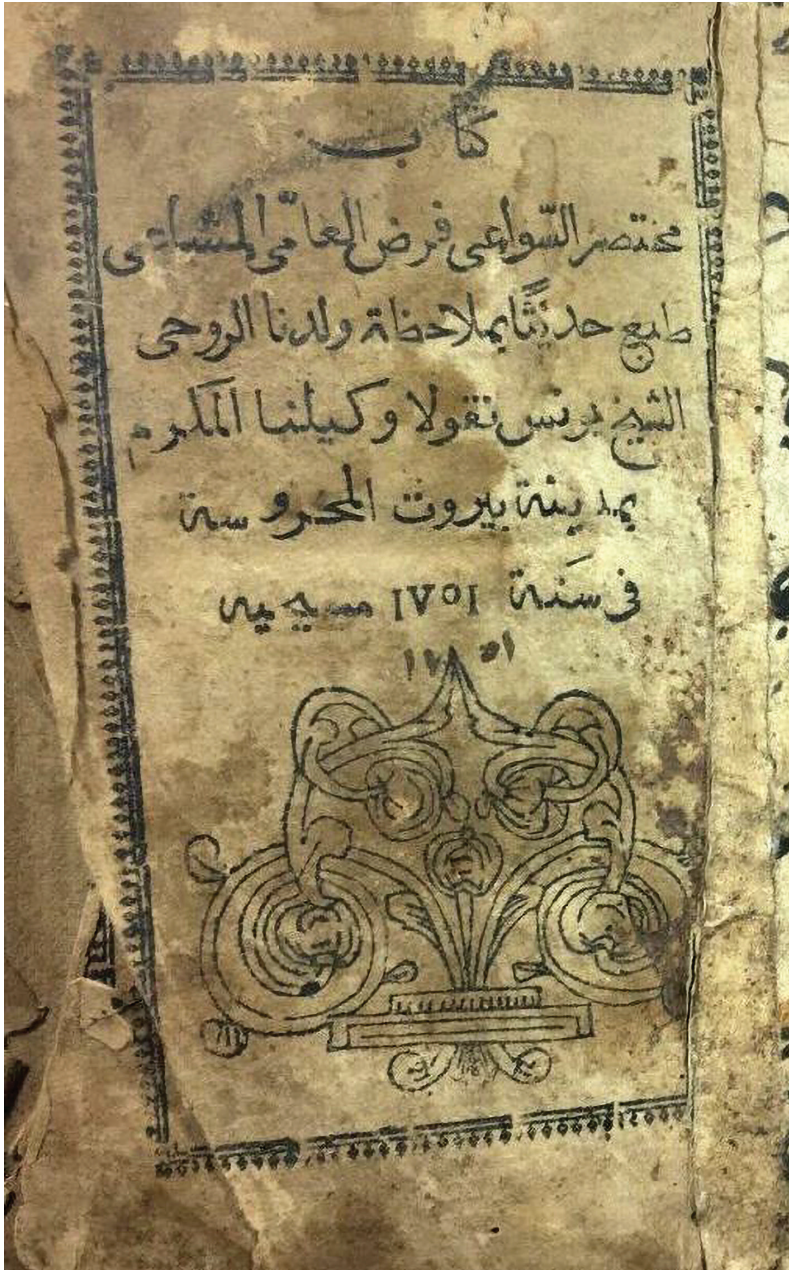 كتاب
مختصر السّواعى فرض العامّى المشاعى
طبع حديثًا بملاحظة ولدنا الروحى
الشيخ يونس نقولا وكيلنا المكرم
بمدينة بيروت المحروسة
فى سَنة ١٧٥١ مسيحيه